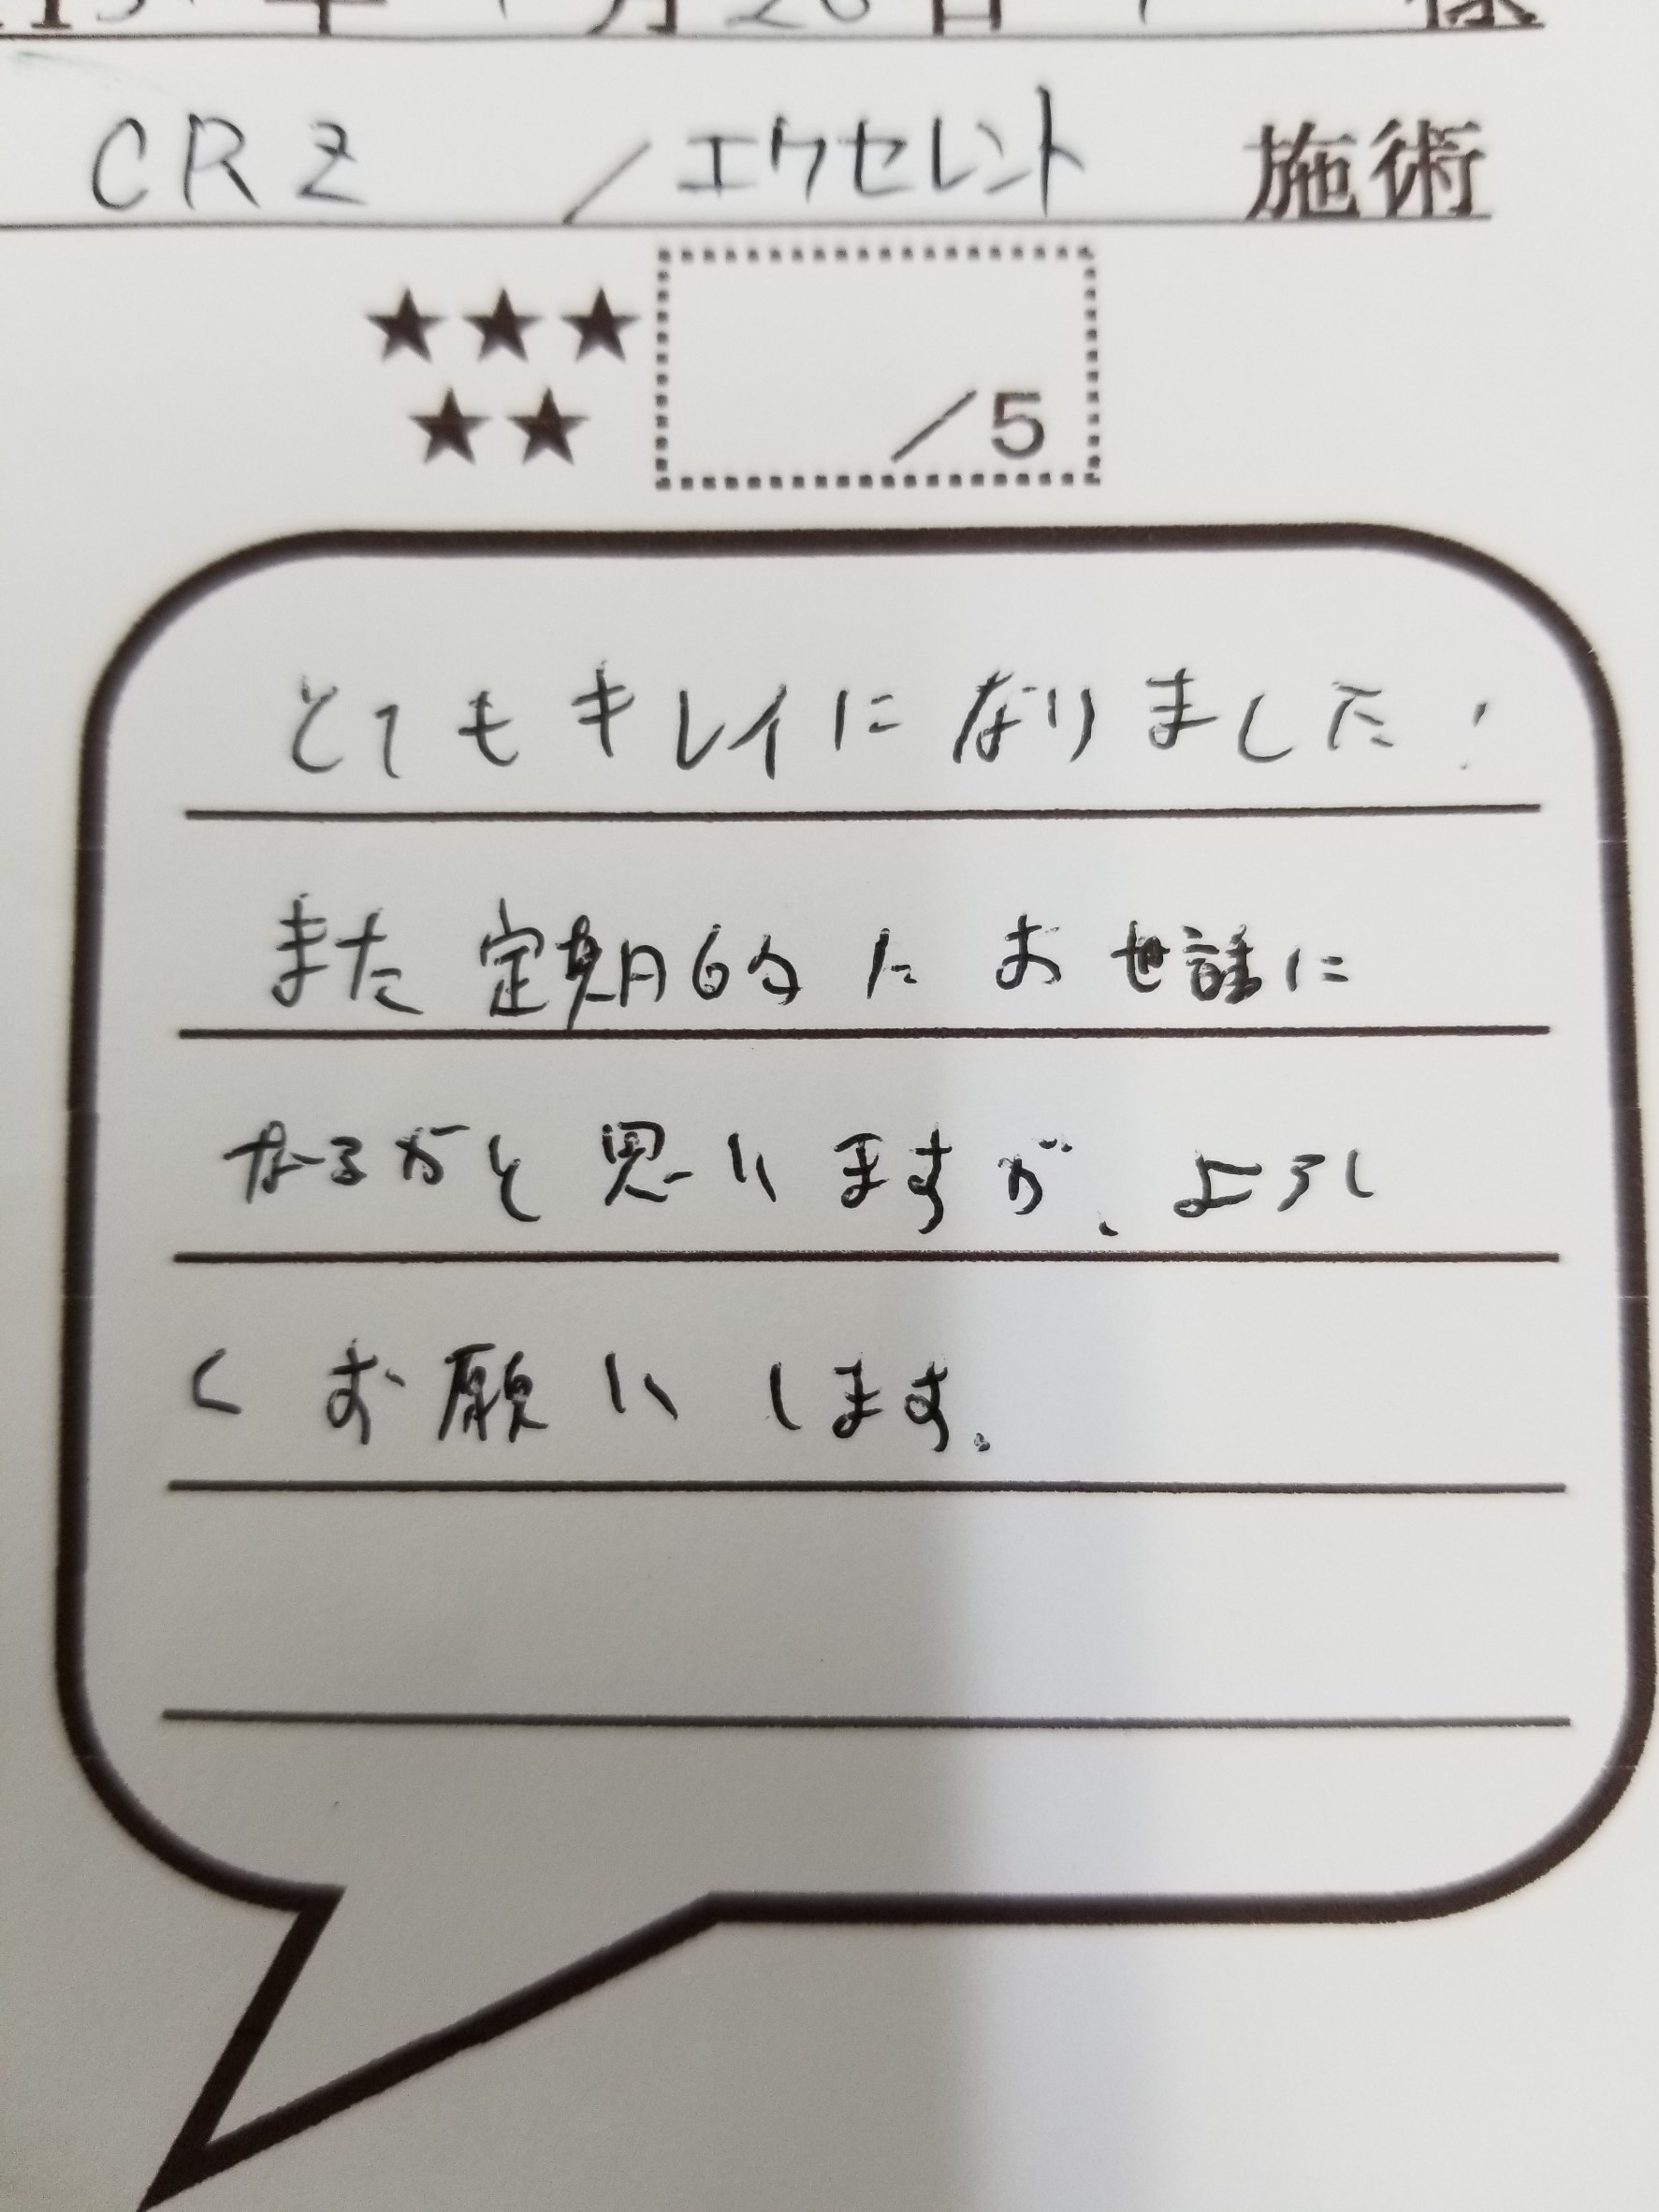 年 月 26日 様
CRZ / エクセレント 施術
★★★
★★
/5
とてもキレイになりました!
また定期的にお世話に
なるかと思いますが、よろし
くお願いします。